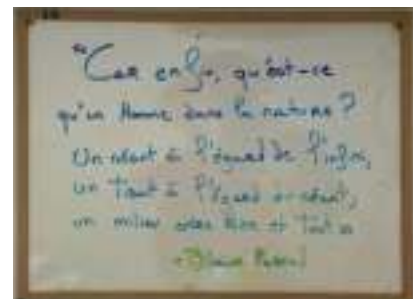 "Car enfin, qu'est-ce
qu'un Homme dans la nature ?
Un néant à l'égard de l'infini,
un Tout à l'égard du néant,
un milieu entre Rien et Tout"
- Blaise Pascal